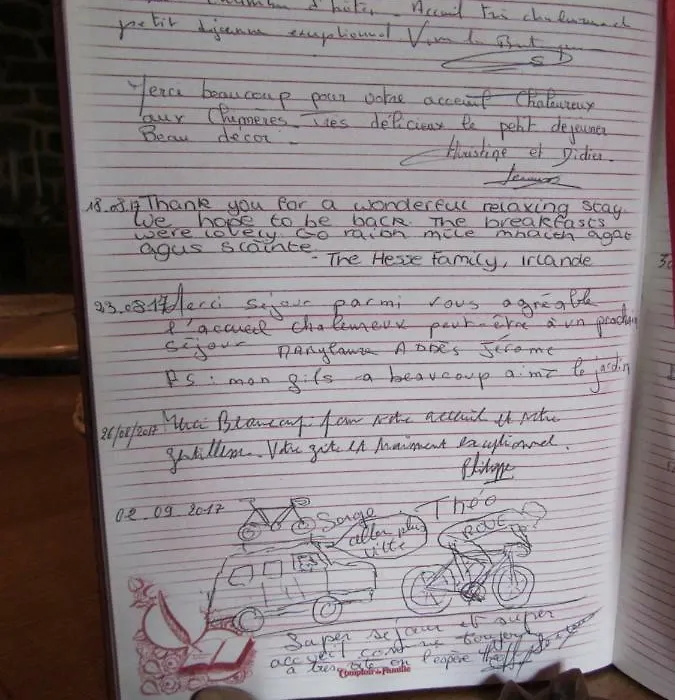 d'hôtes. Accueil très chaleureux
petit déjeuner exceptionnel Vive la
Merci beaucoup pour votre acceuil Chaleureux
aux Chimères. Très délicieux le petit dejeuner
Beau décor.
Christine et Didier.
18.08.17 Thank you for a wonderful relaxing stay.
We hope to be back. The breakfasts
were lovely. Go raibh míle mhaith agat
agus sláinte
- The Hesse Family, Irlande
23.08.17 Merci séjour parmi vous agréable
l'accueil chaleureux peut-être à un prochain
séjour Jérôme
PS: mon fils a beaucoup aimé le jardin
26/08/2017 Merci Beaucoup pour votre accueil et votre
gentillesse. Votre gite est vraiment exceptionnel.
Philippe
02.09.2017
Théo
aller plus
ville
Super séjour et super
accueil comme toujours
à très vite on l'espère
Comptoir de Famille